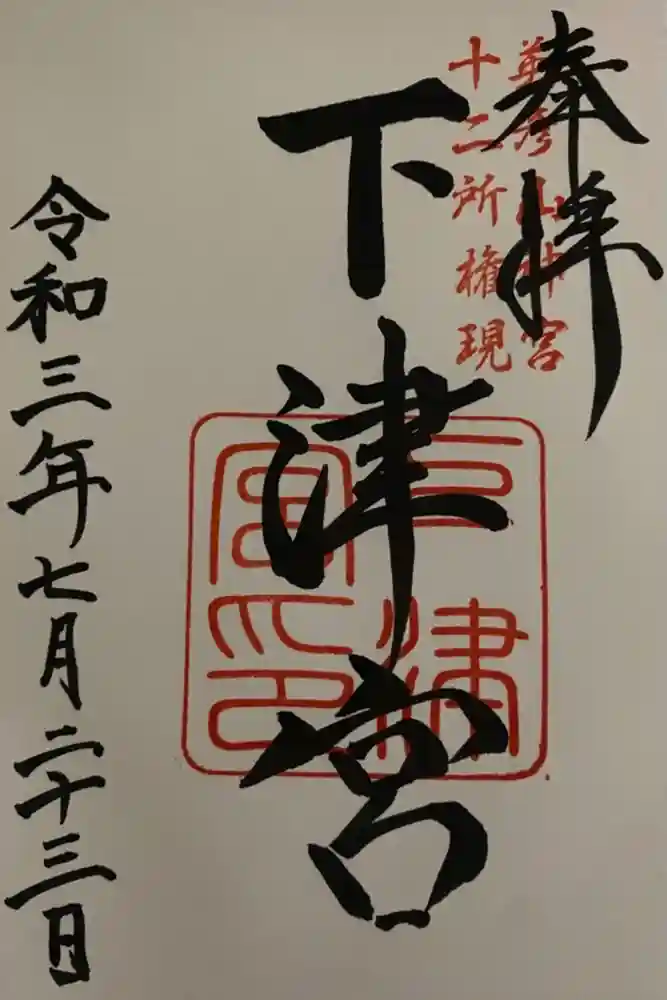 奉拝
英彦山神宮
十二所権現
下津宮
下津
宮印
令和三年七月二十三日